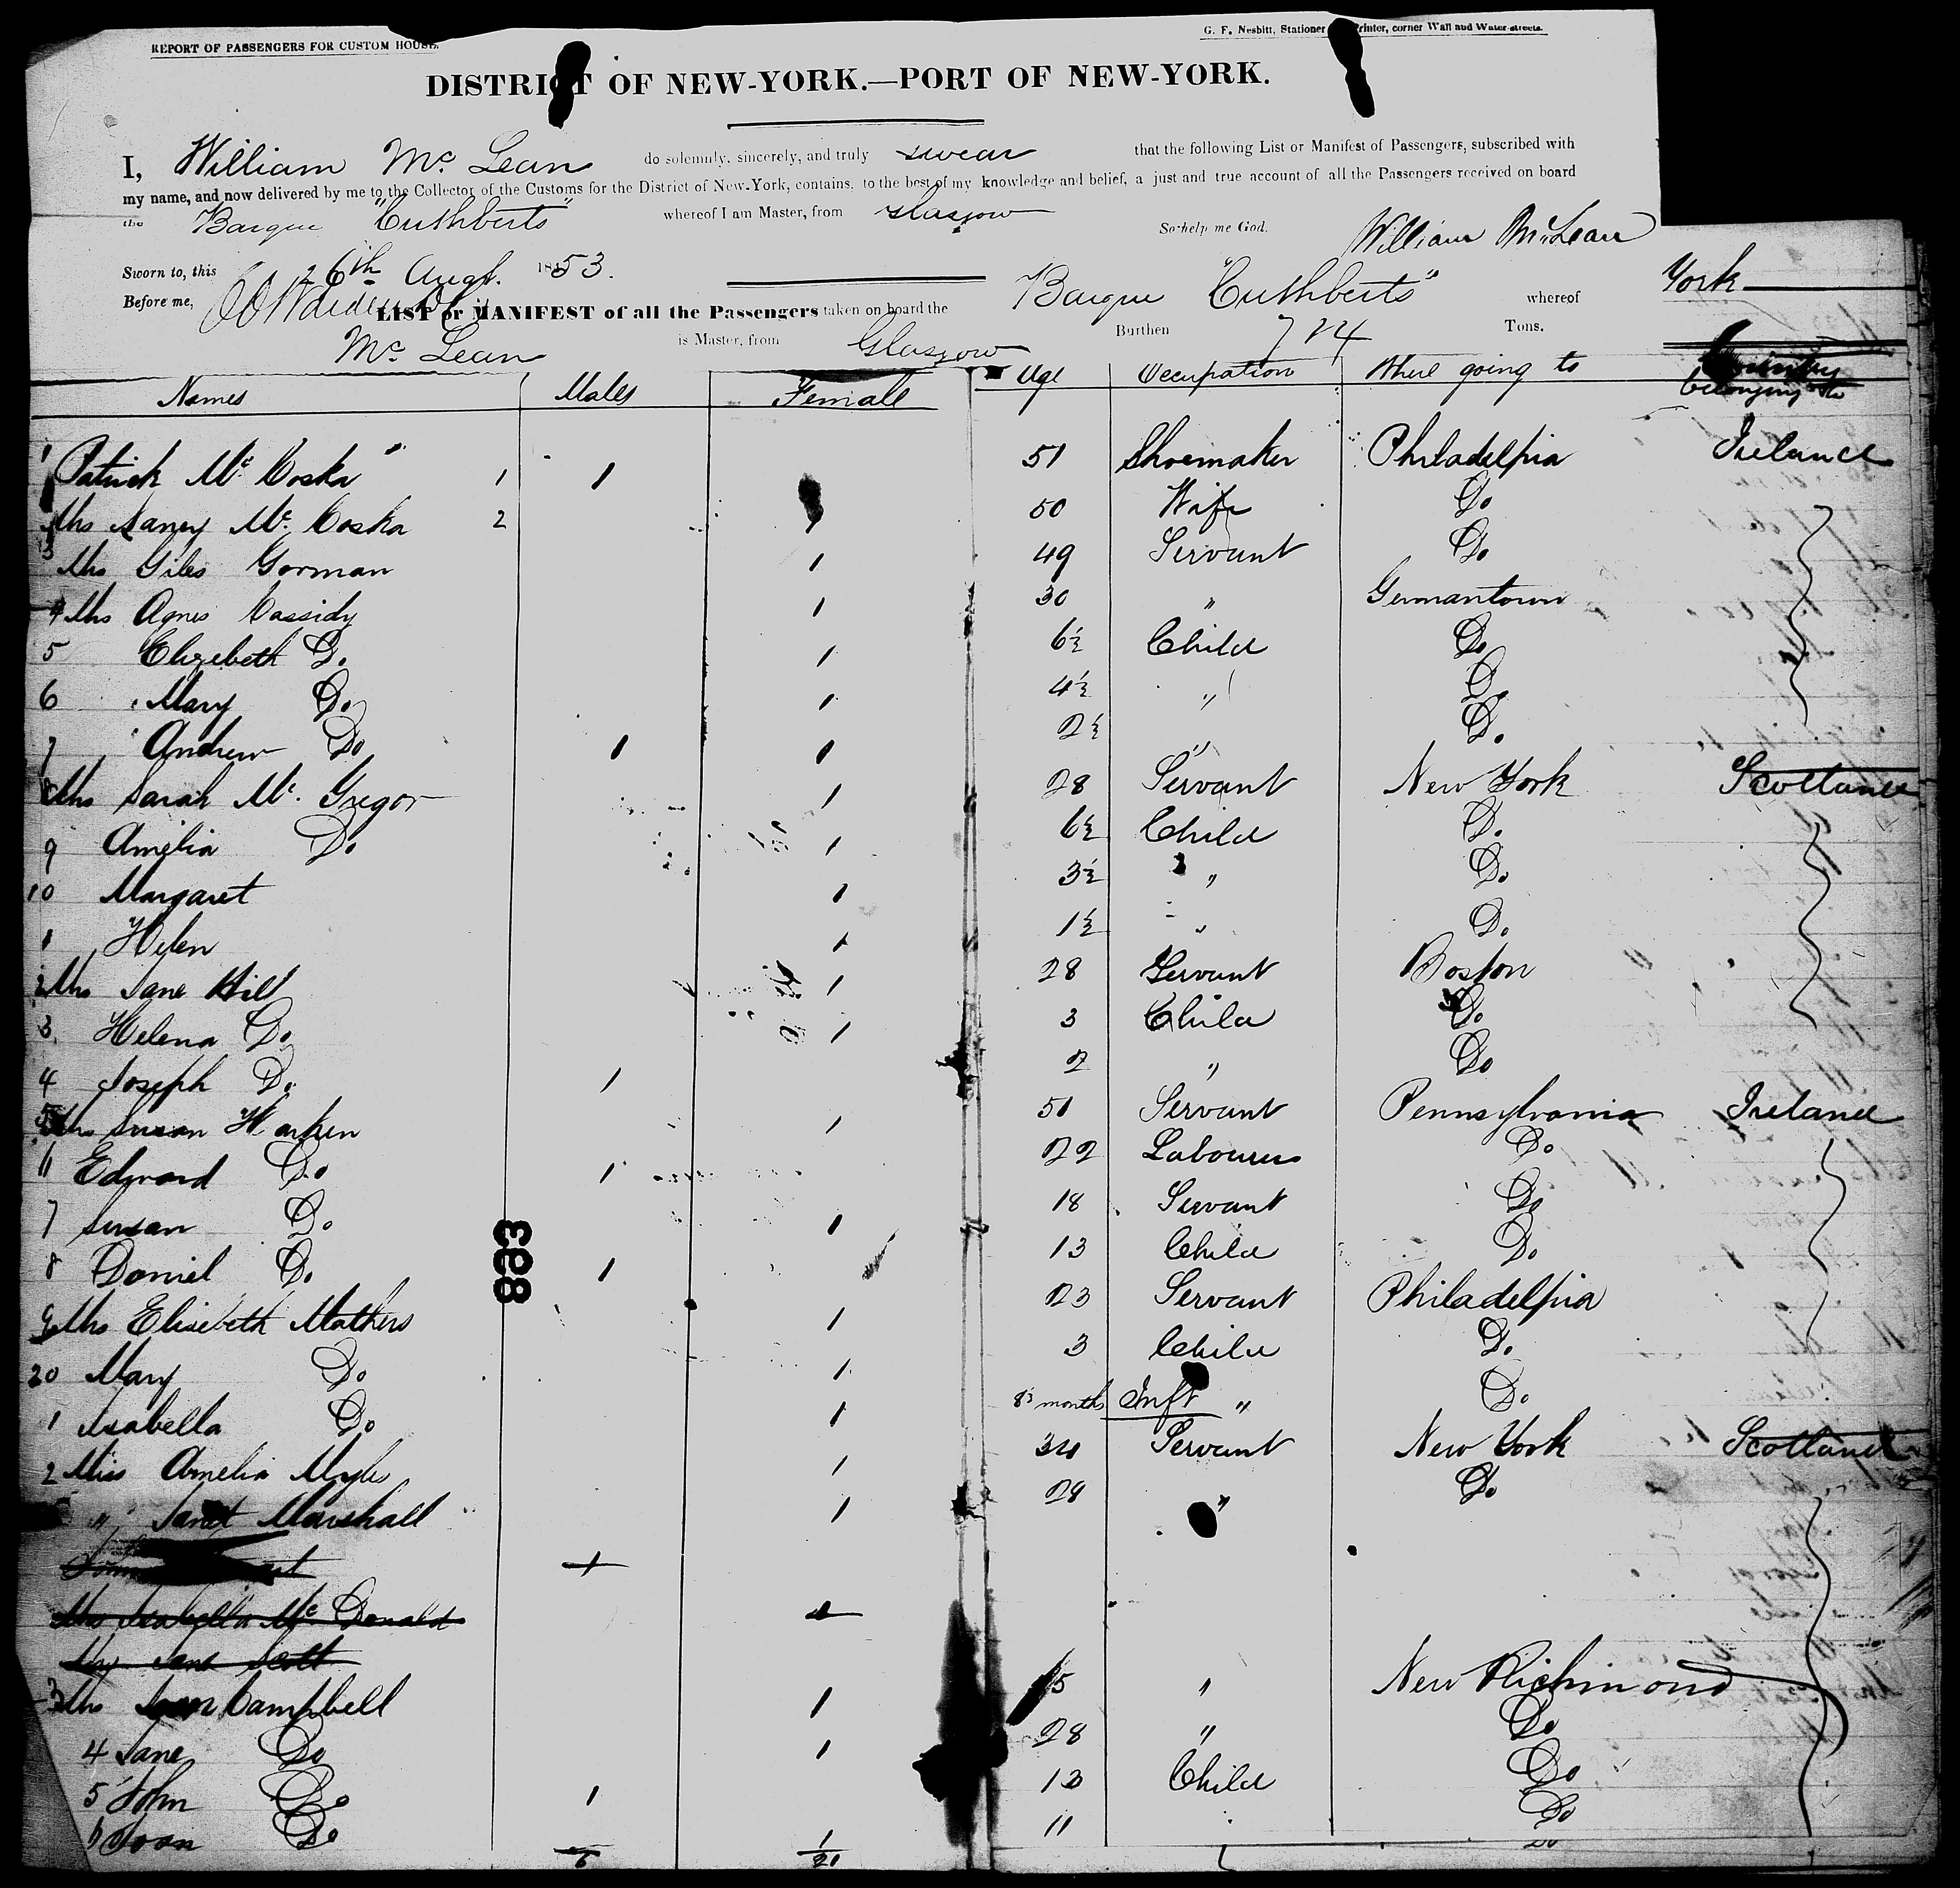 REPORT OF PASSENGERS FOR CUSTOM HOUSE.
G. F. Nesbitt, Stationer Printer, corner Wall and Water-streets.
DISTRICT OF NEW-YORK.—PORT OF NEW-YORK.
I, William Mc Lean do solemnly, sincerely, and truly swear that the following List or Manifest of Passengers, subscribed with
my name, and now delivered by me to the Collector of the Customs for the District of New-York, contains, to the best of my knowledge and belief, a just and true account of all the Passengers received on board
the Barque "Cuthberts" whereof I am Master, from Glasgow
So help me God. William McLean
Sworn to, this 26th Augt. 1853.
Before me,
LIST or MANIFEST of all the Passengers taken on board the Barque "Cuthberts" whereof York
Mc Lean is Master, from Glasgow Burthen 724 Tons.
Names Males Female Age Occupation Where going to Country belonging to
1 Patrick Mc Coska 1 1 51 Shoemaker Philadelphia Ireland
Mrs Nancy Mc Coska 2 1 50 Wife Do
3 Mrs Giles Gorman 1 49 Servant Do
4 Mrs Agnes Cassidy 1 30 " Germantown
5 Elizebeth Do 1 6½ Child Do
6 Mary Do 1 4½ " Do
7 Andrew Do 1 1 2½ " Do
8 Mrs Sarah Mc Gregor 1 28 Servant New York Scotland
9 Amelia Do 1 6½ Child Do
10 Margaret 1 3½ " Do
1 Helen 1 1½ " Do
2 Mrs Jane Hill 1 28 Servant Boston
3 Helena Do 1 3 Child Do
4 Joseph Do 1 2 " Do
5 Mrs Susan Harken 1 51 Servant Pennsylvania Ireland
6 Edward Do 1 22 Labourer Do
7 Susan Do 1 18 Servant Do
8 Daniel Do 1 13 Child Do
893
9 Mrs Elisebeth Mathers 1 23 Servant Philadelphia
20 Mary Do 1 3 Child Do
1 Isabella Do 1 8 months Inft " Do
2 Miss Amelia Myles 1 34 Servant New York Scotland
" Janet Marshall 1 28 " Do
1
Mrs Isabella Mc Donald 1
Jane Scott
3 Mrs Campbell 1 " New Richmond
4 Jane Do 1 28 " Do
5 John Do 1 13 Child Do
6 Joan Do 1 11 Do
6 20 Do